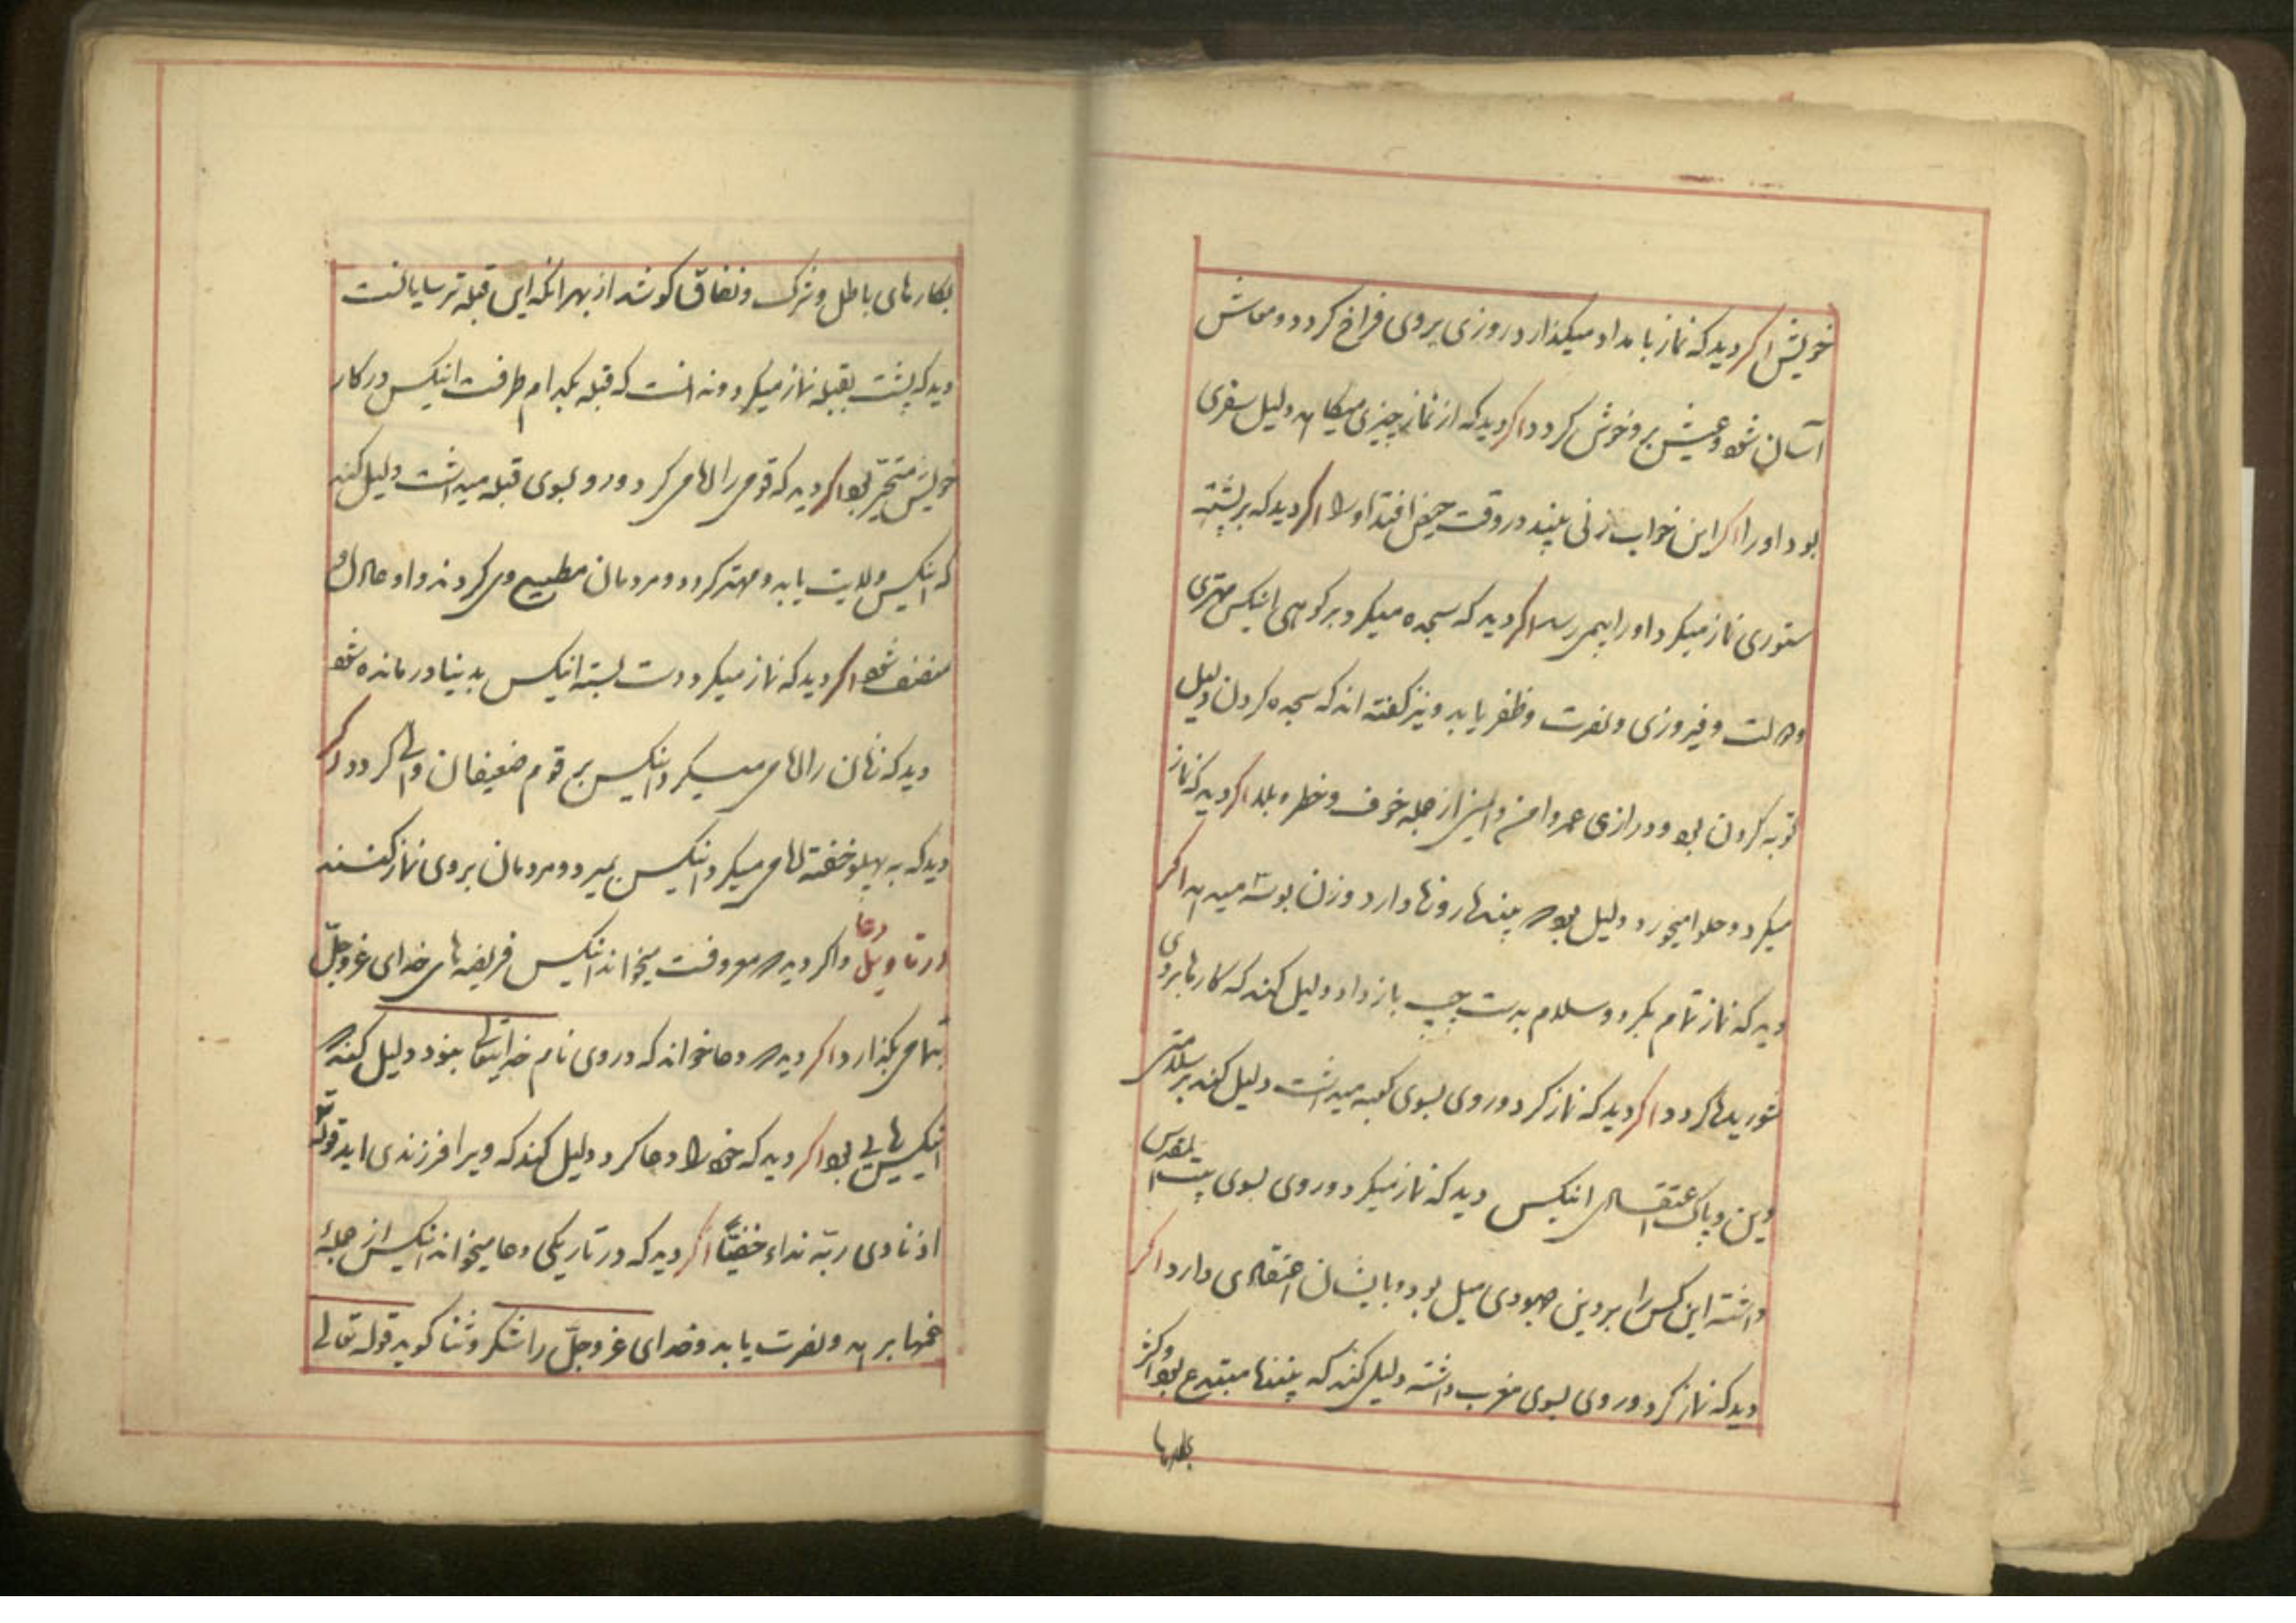 خویش اکر دید که نماز بامداد میکذارد روزی بروی فراخ کردد و معاش
آسان شود و عیش برو خوش کردد اکر دید که از نماز چیزی میکاهد دلیل سفری
بود او را اکر این خواب زنی بیند در وقت حیض افتد او را اکر دید که بر پشته
ستوری نماز میکرد او را بیم رسد اکر دید که سجده میکرد بر کوهی انیکس مهتری
دولت و فیروزی و نصرت و ظفر یابد و نیز کفته اند که سجده کردن دلیل
توبه کردن بود و درازی عمر و امن و از جمله خوف و خطر اکر دید که نماز
میکرد و حلوا میخورد دلیل بود که روزها دارد و زن بوسه میدهد اکر
دید که نماز تمام بکرد و سلام بدست چپ باز داد دلیل کند که کارها بروی
شوریده کردد اکر دید که نماز کرد و روی بسوی کعبه میداشت دلیل کند بر سلامتی
دین و پاک اعتقادی انیکس دید که نماز میکرد و روی بسوی بیت المقدس
داشته این کس را بر دین جهودی میل بود و بایشان اعتقادی دارد اکر
دید که نماز کرد و روی بسوی مغرب داشته دلیل کند که مبتدع بود و اکثر
بکارها
بکارهای باطل و شرک و نفاق کوشد از بهر انکه این قبله ترسایانست
دید که پشت بقبله نماز میکرد و ندانست که قبله بکدام طرفست انیکس در کار
خویش متحیر بود اکر دید که قومی را امامی کرد و رو بسوی قبله میداشت دلیل کند
که انیکس ولایت یابد و مهتر کردد و مردمان مطیع وی کردند و او عادل و
منصف شود اکر دید که نماز میکرد دست بسته انیکس بدنیا درمانده شود
دید که زنان را امامی میکرد انیکس بر قوم ضعیفان والی کردد اکر
دید که به پهلو خفته امامی میکرد انیکس بمیرد و مردمان بروی نماز کنند
در تاویل دعا و اکر دید که معروفست میخواند انیکس فریضه های خدای عزوجل
بتمامی بکذارد اکر دید که دعا خواند که در وی نام خدایتعالی نبود دلیل کند که
انیکس ریایی بود اکر دید که خود را دعا کرد دلیل کند که ویرا فرزندی اید قوله تع
اذ نادی ربه نداء خفیا اکر دید که در تاریکی دعا میخواند انیکس از جمله
غمها برهد و نصرت یابد و خدای عزوجل را شکر و ثنا کوید قوله تعالی